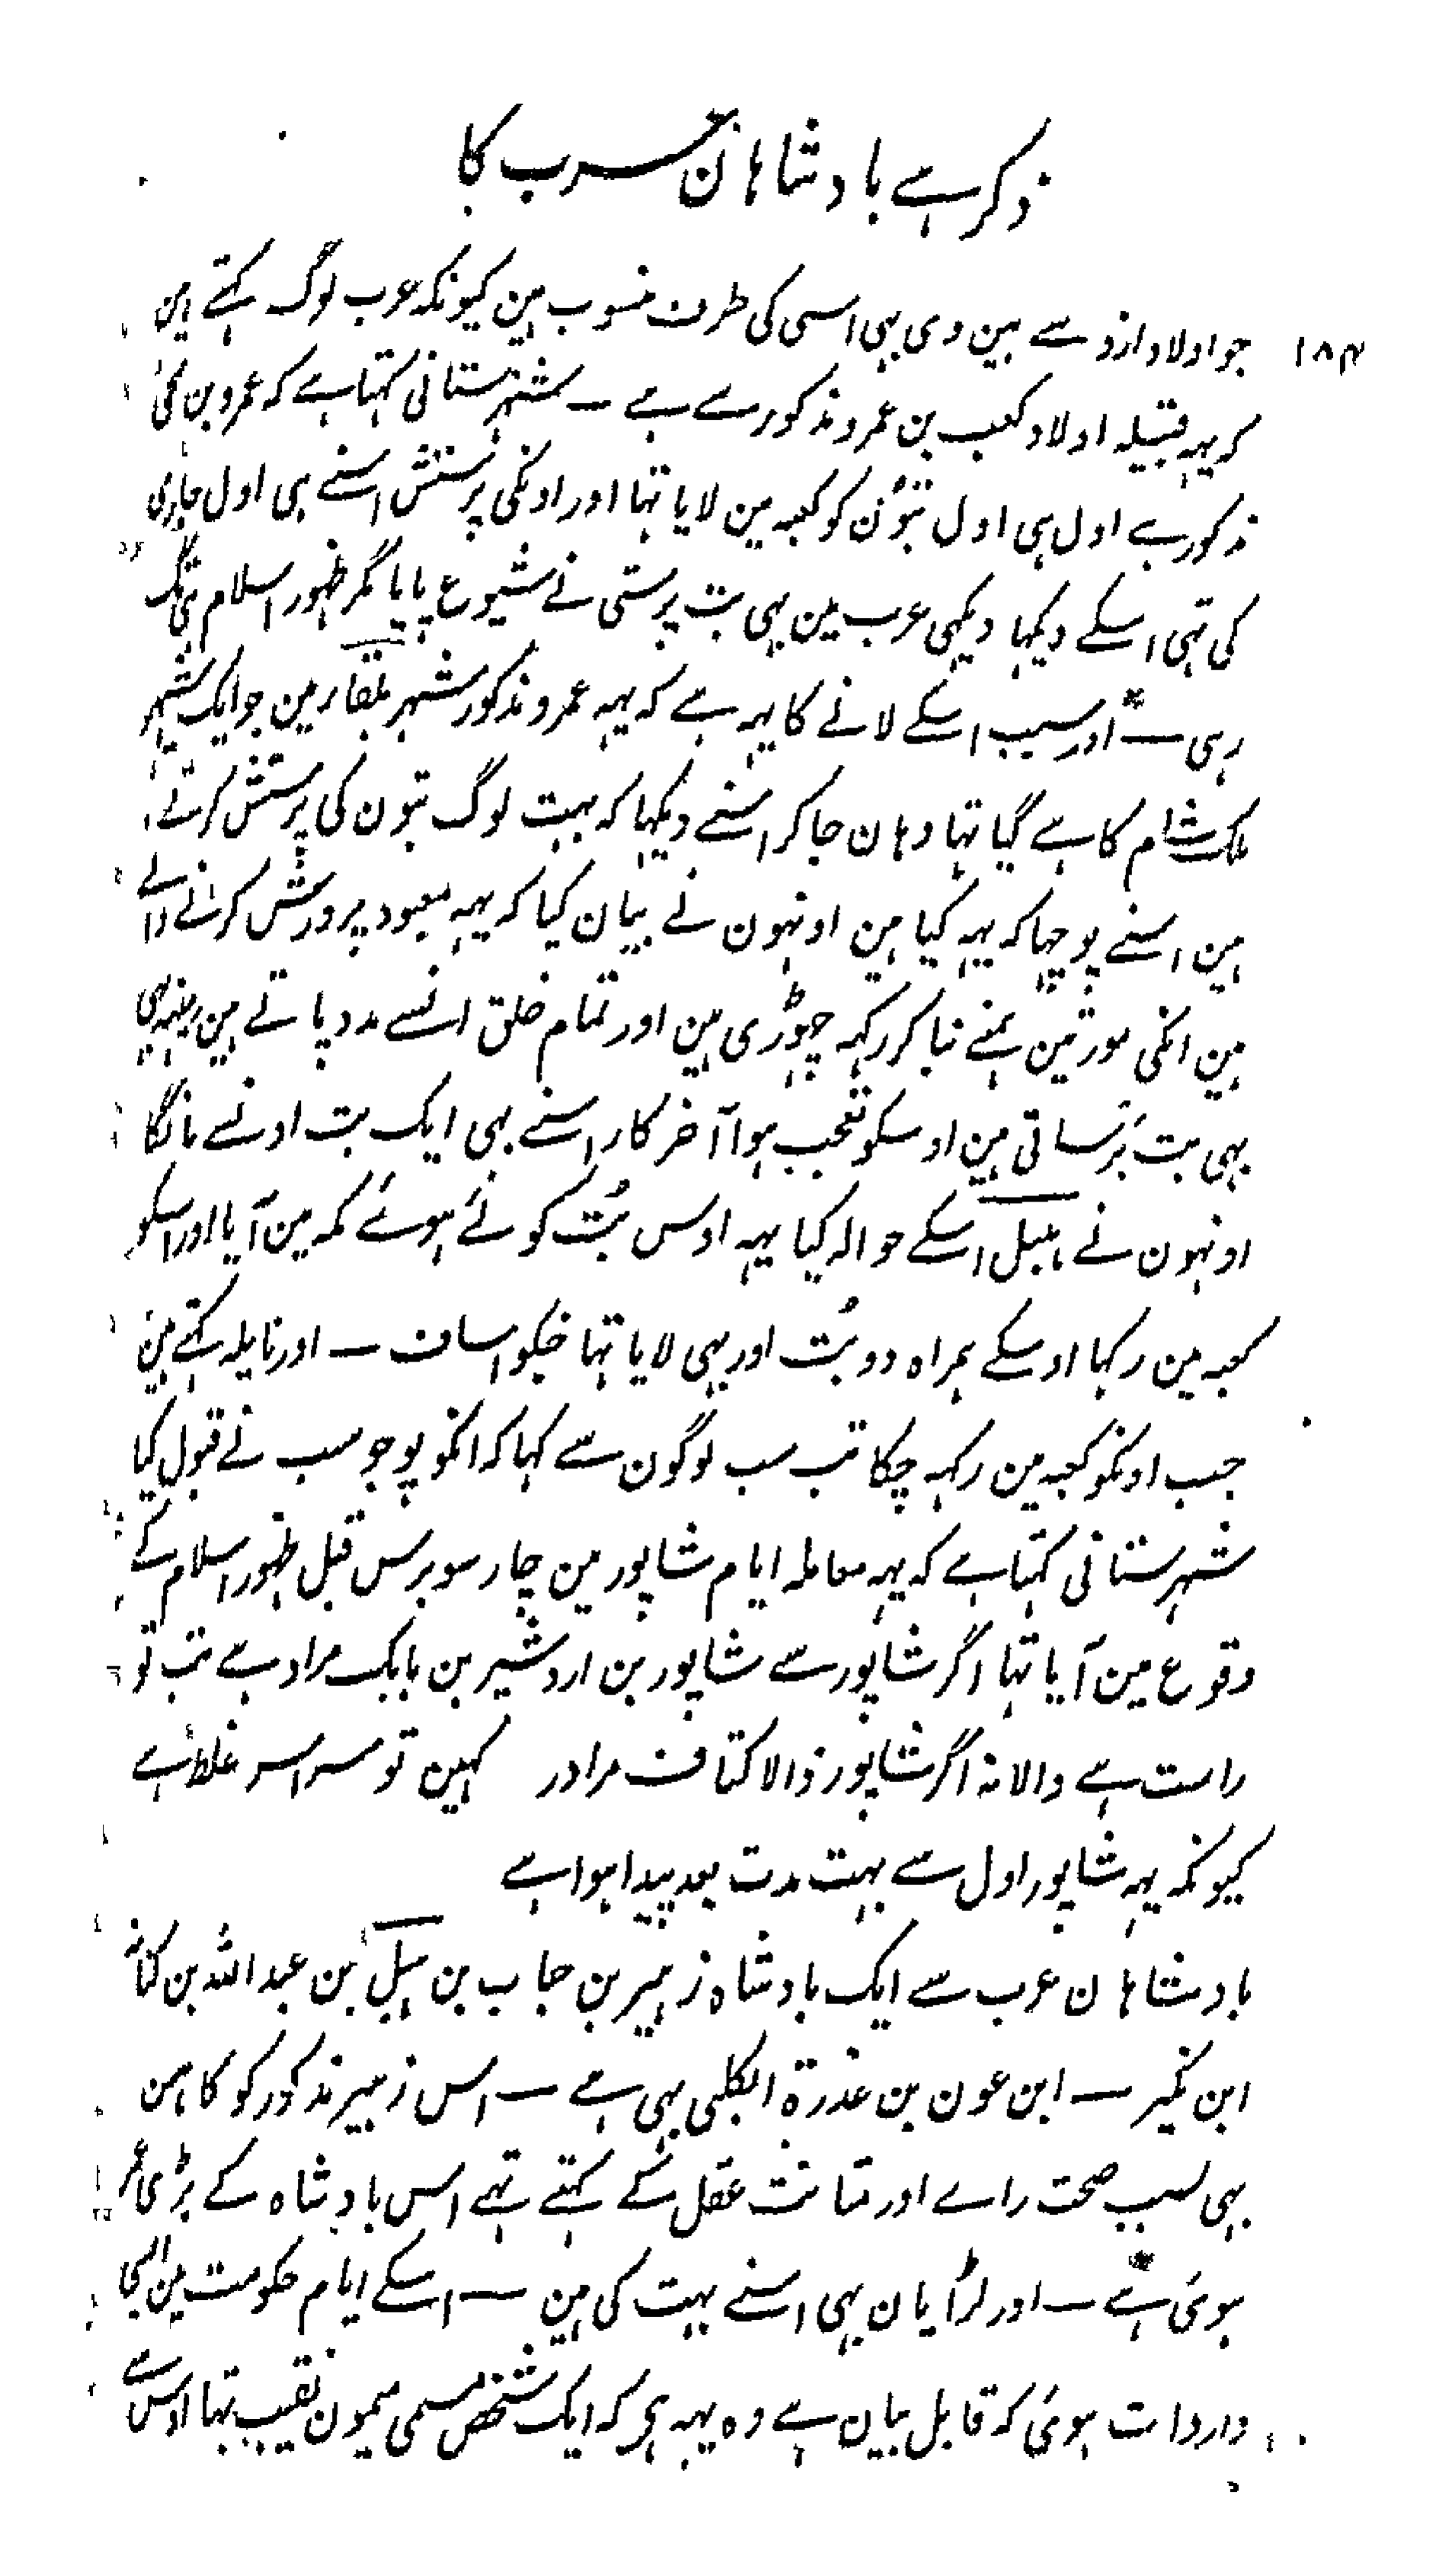 ذکر ہے بادشاہان عرب کا
۱۸۴ جو اولاد ازد سے ہین وی بہی اسی کی طرف منسوب ہین کیونکہ عرب لوگ کہتے ہین
کہ یہہ قبیلہ اولاد کعب بن عمرو مذکور سے ہے ــ شہرستانی کہتا ہے کہ عمرو بن لحی
مذکور ہے اول ہی اول بتون کو کعبہ مین لایا تہا اور اونکی پرستش اسنے ہی اول جاری
کی تہی اسکے دیکہا دیکہی عرب مین بہی بت پرستی نے شیوع پایا مگر ظہور اسلام ہی تک
رہی ــ اور سبب اسکے لانے کا یہہ ہے کہ یہہ عمرو مذکور شہر بلقار مین جو ایک شہر
ملک شام کا ہے گیا تہا وہان جاکر اسنے دیکہا کہ بہت لوگ بتون کی پرستش کرتے
ہین اسنے پوچہا کہ یہہ کیا ہین اونہون نے بیان کیا کہ یہہ معبود پرورش کرنے والے
ہین انکی مورتین ہمنے بنا کر رکہہ چہوڑی ہین اور تمام خلق انسے مدد پاتے ہین مینہہ بہی
یہی بت برساتی ہین اوسکو تعجب ہوا آخر کار اسنے بہی ایک بت اونسے مانگا
اونہون نے ہبل اسکے حوالہ کیا یہہ اوس بُت کو لئے ہوئے مکہ مین آیا اور اسکو
کعبہ مین رکہا اوسکے ہمراہ دو بُت اور بہی لایا تہا جنکو اساف ــ اور نایلہ کہتے ہین
جب اونکو کعبہ مین رکہہ چکا تب سب لوگون سے کہا کہ انکو پوجو سب نے قبول کیا
شہرستانی کہتا ہے کہ یہہ معاملہ ایام شاپور مین چار سو برس قبل ظہور اسلام کے
وقوع مین آیا تہا اگر شاپور سے شاپور بن اردشیر بن بابک مراد ہے تب تو
راست ہے والا نہ اگر شاپور ذوالاکتاف مراد کہین تو سراسر غلط ہے
کیونکہ یہہ شاپور اول سے بہت مدت بعد پیدا ہوا ہے
بادشاہان عرب سے ایک بادشاہ زہیر بن جباب بن ہبل بن عبد اللہ بن کنانہ
ابن بکیر ــ ابن عون بن عذرۃ الکلبی بہی ہے ــ اس زہیر مذکور کو کاہن
بہی بسبب صحت راے اور متانت عقل کے کہتے تہے اس بادشاہ کے بڑی عمر
ہوئی ہے ــ اور لڑایان بہی اسنے بہت کی ہین ــ اسکے ایام حکومت مین ایک
واردات ہوئی کہ قابل بیان ہے وہ یہہ ہی کہ ایک شخص مسمی میمون نقیب تہا اوس سے